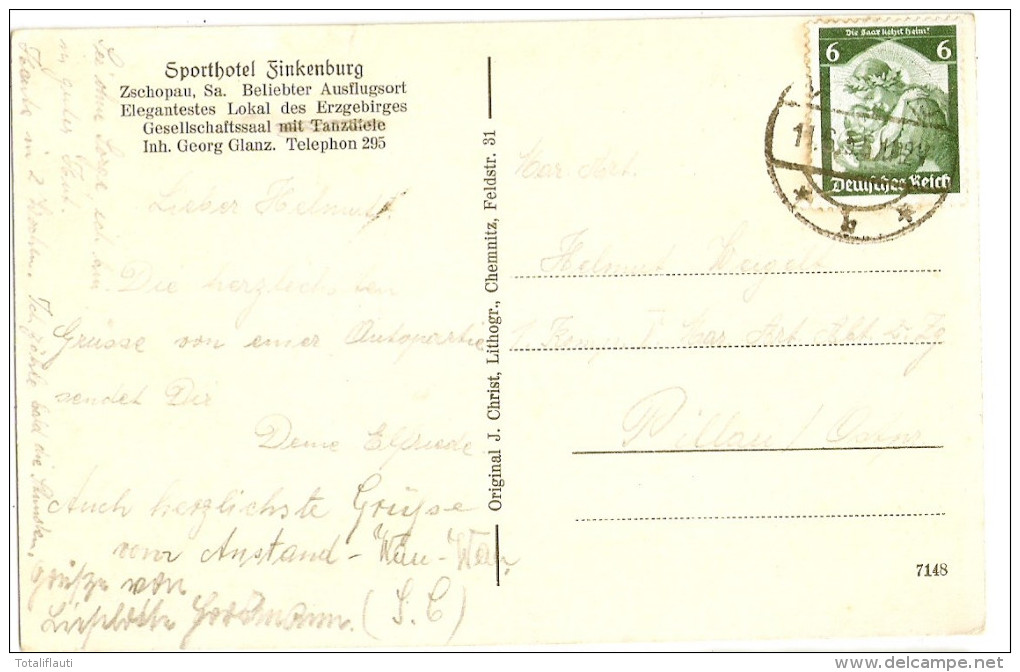 Sporthotel Finkenburg
Zschopau, Sa. Beliebter Ausflugsort
Elegantestes Lokal des Erzgebirges
Gesellschaftssaal mit Tanzdiele
Inh. Georg Glanz. Telephon 295
Lieber Helmuth!
Die herzlichsten
Grüsse von einer Autopartie
sendet Dir
Deine Elfriede
Auch herzlichste Grüße
vom Anstand-Wau-Wau,
Grüße von
(S. C)
Heute in 2 Wochen. Ich zähle bald die Stunden.
Original J. Christ, Lithogr., Chemnitz, Feldstr. 31
Die Saar kehrt heim!
6 6
Deutsches Reich
Mar. Art.
Helmut Weigelt
Mar. Art. Abt.
Pillau / Ostpr.
7148
Totaliflauti
www.delcampe.net